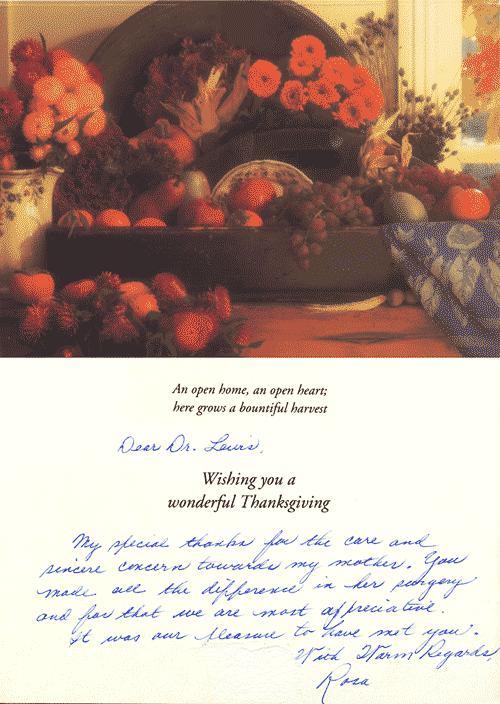 An open home, an open heart;
here grows a bountiful harvest
Dear Dr. Lewis,
Wishing you a
wonderful Thanksgiving
My special thanks for the care and
sincere concern towards my mother. You
made all the difference in her surgery
and for that we are most appreciative.
It was our pleasure to have met you.
With Warm Regards,
Rosa